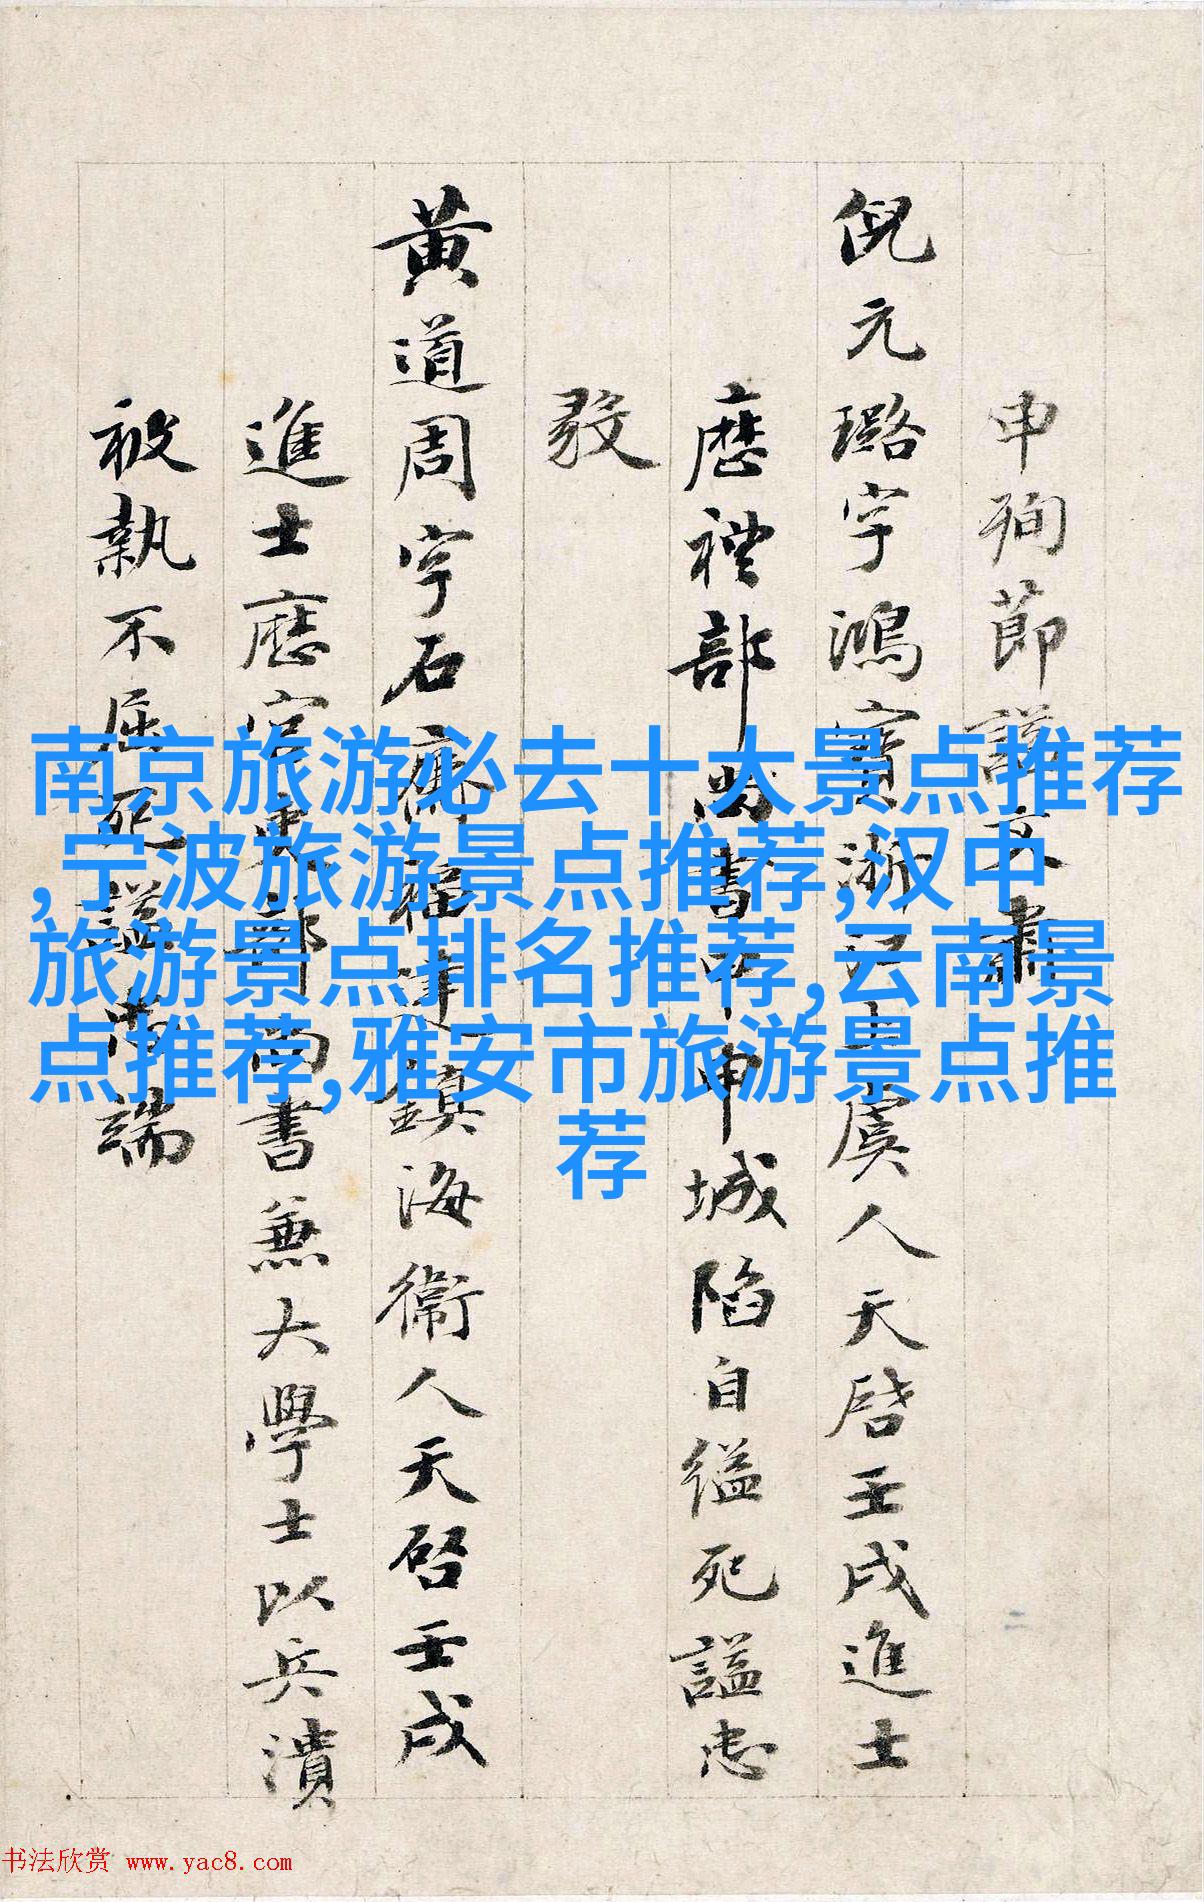 申殉節謚文肅
倪元璐字鴻寶浙江上虞人天啓壬戌進士
歷禮部尚書甲申城陷自縊死謚忠
黄道周字石齋福建鎮海衞人天啓壬戌
進士歷官吏部尚書兼大學士以兵潰
被執不屈死謚忠端
南京旅游必去十大景点推荐
,宁波旅游景点推荐,汉中
旅游景点排名推荐,云南景
点推荐,雅安市旅游景点推
荐
书法欣赏 www.yac8.com